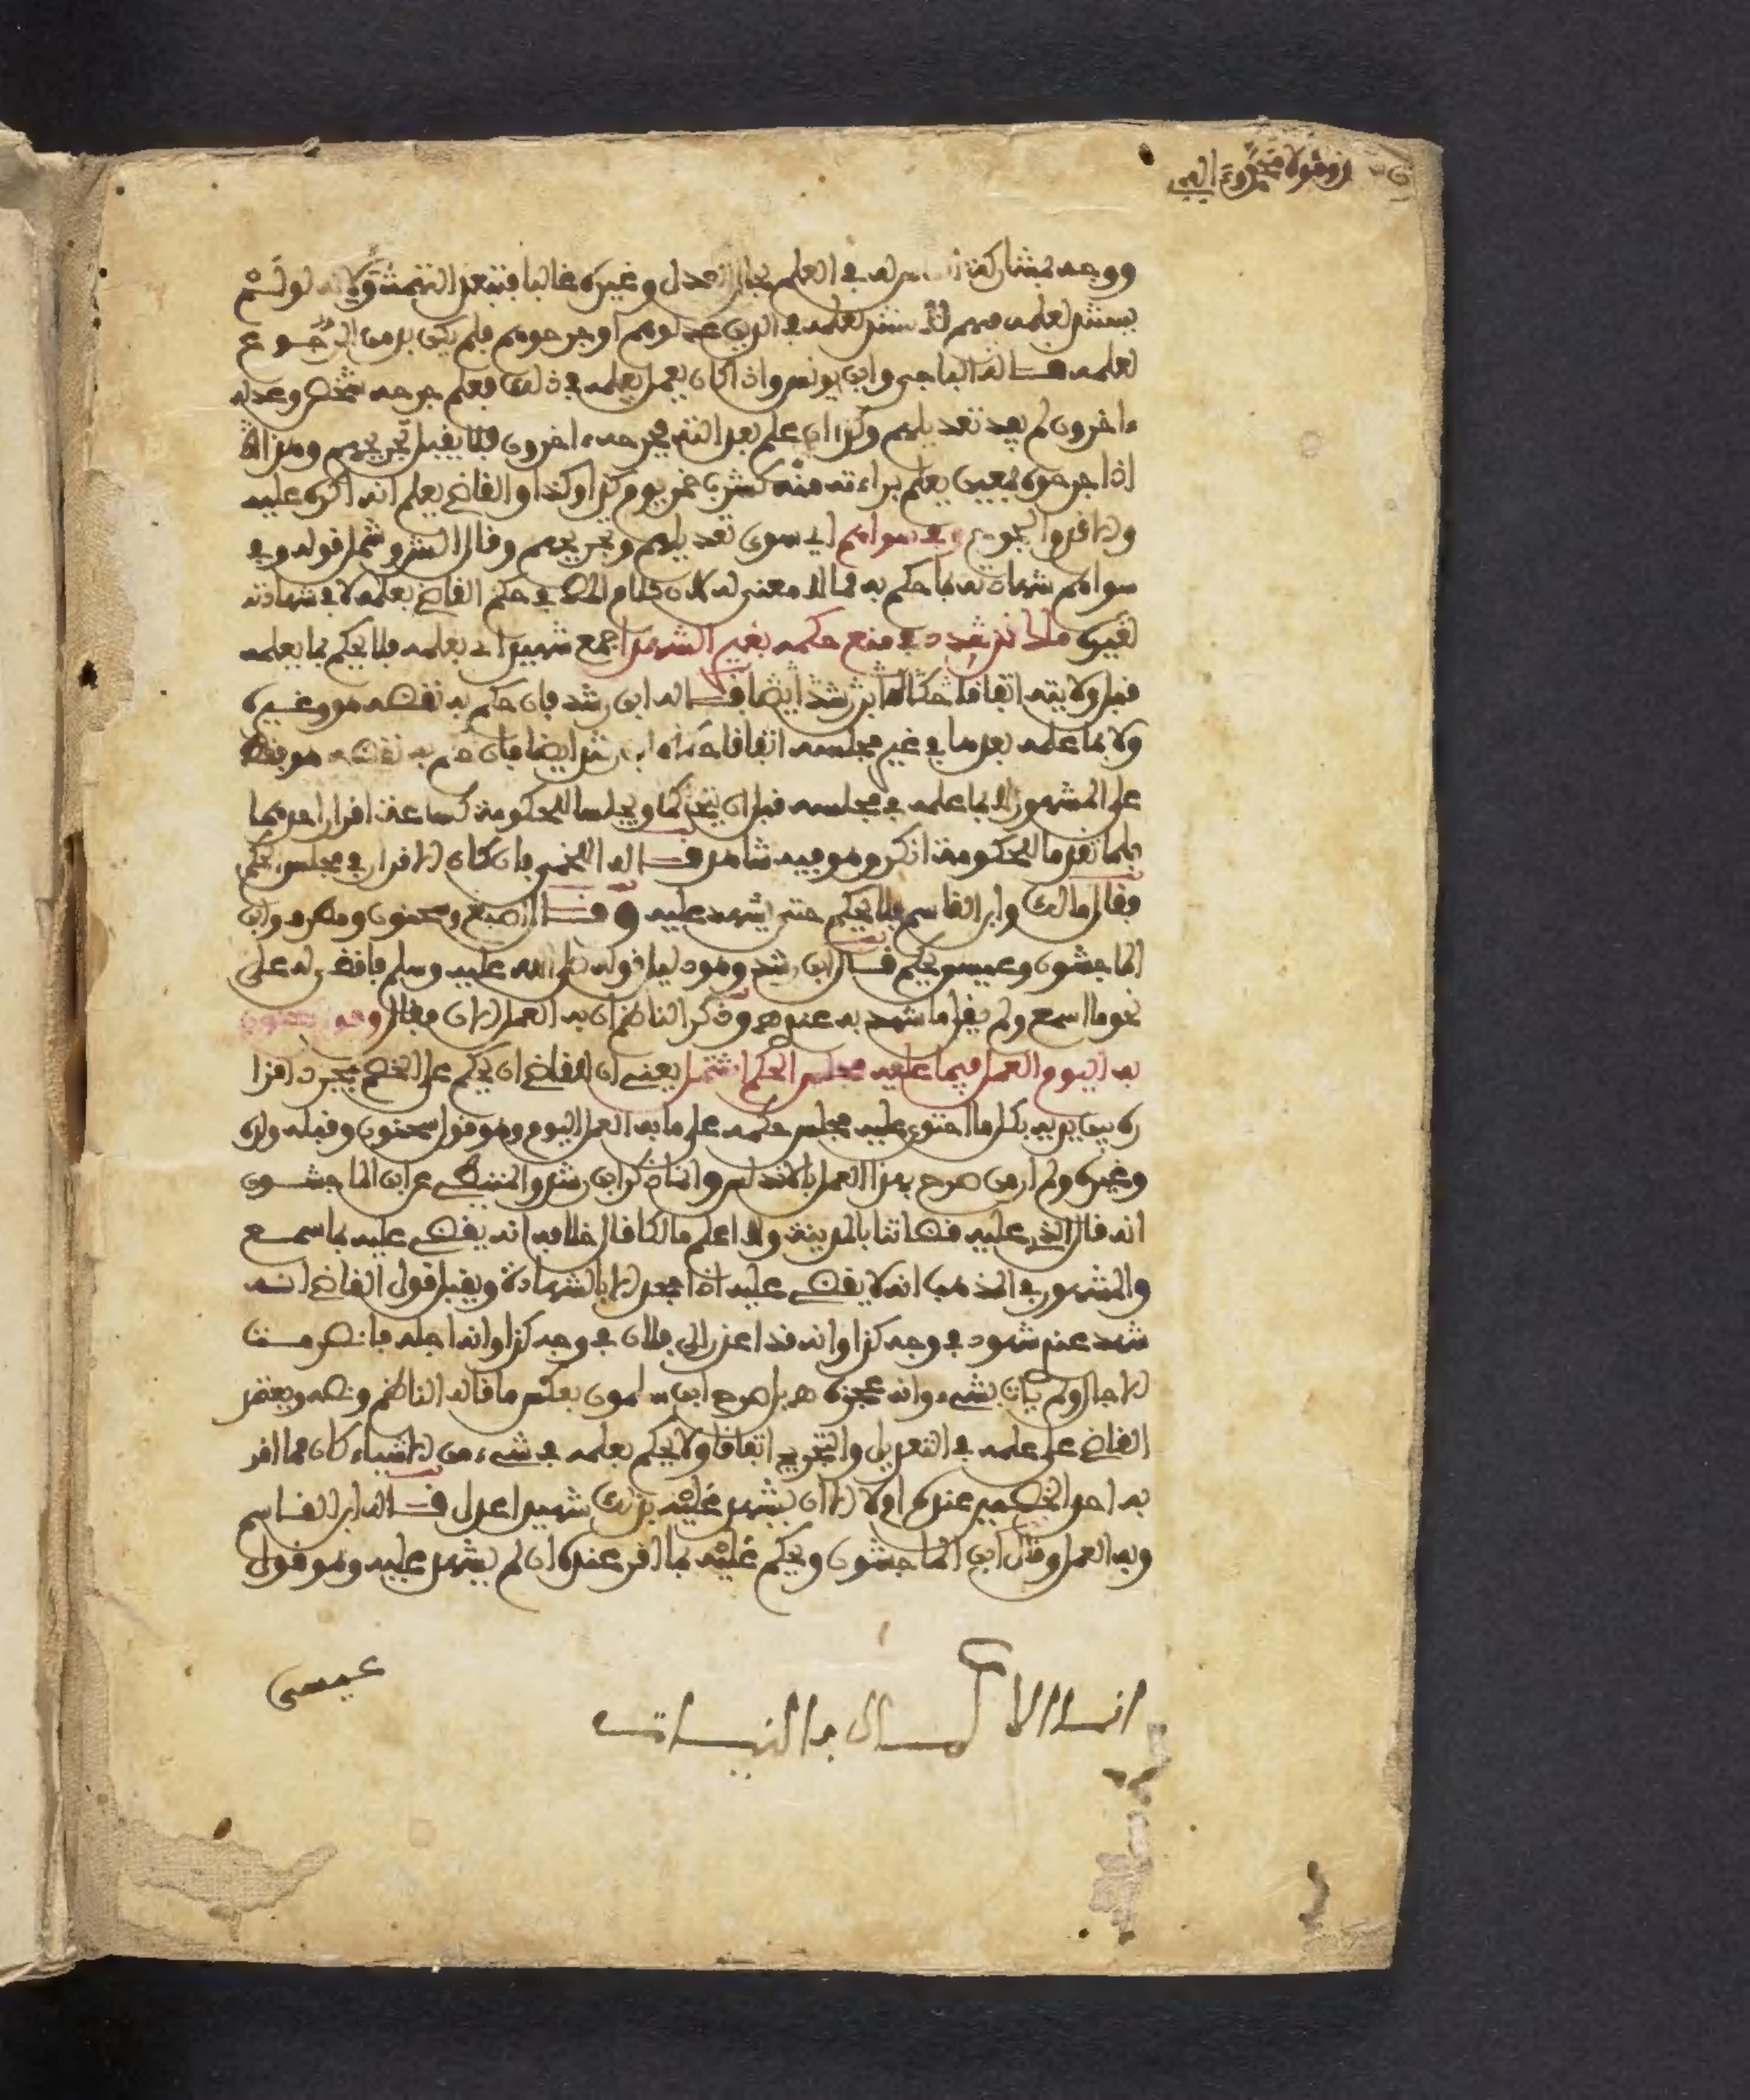 زوقولا مخزوءة البيـ
ووجه مشاركة الناس له في العلم بحال العدل وغيره غالبا فتبعد التهمة ولانه لو لم
يستند لعلمه فيهم لا ستند لعلمه في الذين عدلوهم او جرحوهم فلم يكن بد من الرجوع
لعلمه قاله الباجي وابن يونس واذا كان يعمل بعلمه في ذلك فعلم جرحه شخص وعدله
ءاخرون لم يفد تعديلهم وكذا ان علم بعدالته فجرحه ءاخرون فلا يقبل تجريحهم وهذا
اذا جرحوه بمعين يعلم براءته منه كشرب خمر يوم كذا وكذا والقاضي يعلم انه اكره عليه
ولا قدموا تجريح وفي سواهم اي سوى تعديلهم وتجريحهم وقال الشر وشمل قوله وفي
سواهم شهادته بما حكم به مما لا معنى له لان كلام الناظم في حكم القاضي بعلمه لا في شهادته
لغيره مالك قد شدد في منع حكمه بغير الشهدا جمع شهيد اي بعلمه فلا يحكم بما يعلمه
قبل ولايته اتفاقا حكاه ابن رشد ايضا قاله ابن رشد فان حكم به نقضه هو وغيره
ولا بما علمه بعدها في غير مجلسه اتفاقا حكاه ابن رشد ايضا فان حكم به نقضه هو فقط
على المشهور ولا بما علمه في مجلسه قبل ان يتحاكما ويجلسا للحكومة كسماعه اقرار احدهما
فلما تقدما للحكومة انكر وهو فيه شاهد قاله اللخمي فان كان الاقرار في مجلس الحكم
فقال مالك وابن القاسم فلا يحكم حتى يشهد عليه وقال اصبغ وسحنون ومطرف وابن
الماجشون وعيسى يحكم قال ابن رشد وهو دليل قوله صلى الله عليه وسلم فاقضي له على
نحو ما اسمع ولم يقل ما شهد به عندي هـ وذكر الناظم ان به العمل الان فقال وقول سحنون
به اليوم العمل فيما عليه مجلس الحكم اشتمل يعني ان القاضي ان يحكم على الخصم بمجرد اقرا
ره بين يديه بكل ما احتوى عليه مجلس حكمه على ما به العمل اليوم وهو قول سحنون وقبله ولده
وغيره ولم ار من صرح بهذا العمل بالاندلس وانما ذكر ابن رشد والمتيطي عن ابن الماجشون
انه قال الذي عليه قضاتنا بالمدينة ولا اعلم مالكا قال خلافه انه يقضي عليه بما سمع
والمشهور في المذهب انه لا يقضي عليه اذا جحد الا بالشهادة ويقبل قول القاضي انه
شهد عندي شهود في وجه كذا وانه قد اعذر الى فلان في وجه كذا وانه اجله فانصرمت
الاجال ولم يات بشيء وانه عجزه هـ بل صرح ابن سلمون بعكس ما قاله الناظم ونصه ويعتمد
القاضي على علمه في التعديل والتجريح اتفاقا ولا يحكم بعلمه في شيء من الاشياء كان مما اقر
به احد الخصمين عنده او لا الا ان يشهد عليه بذلك شهيدا عدل قاله ابن القاسم
وبه العمل وقال ابن الماجشون ويحكم عليه بما اقر عنده ان لم يشهد عليه وهو قول
عيسى
انما الاعمال بالنيات